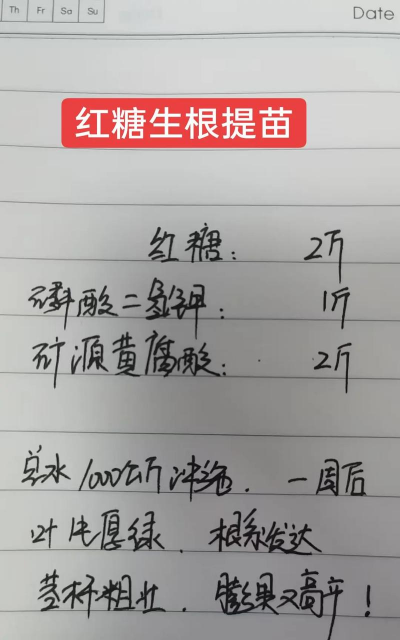 Th Fr Sa Su Date
红糖生根提苗
红糖: 2斤
磷酸二氢钾: 1斤
矿源黄腐酸: 2斤
兑水1000公斤冲施. 一周后
叶片厚绿. 根系发达
茎杆粗壮. 膨果又高产!